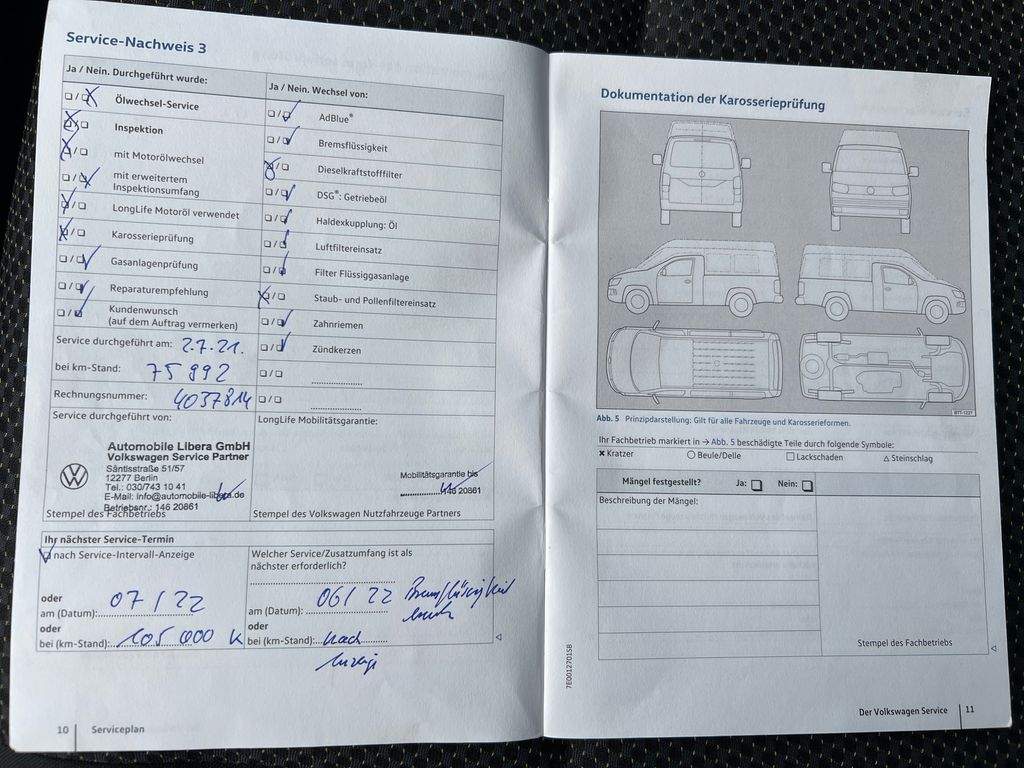 Service-Nachweis 3
Ja / Nein. Durchgeführt wurde:
Ölwechsel-Service
Inspektion
mit Motorölwechsel
mit erweitertem
Inspektionsumfang
LongLife Motoröl verwendet
Karosserieprüfung
Gasanlagenprüfung
Reparaturempfehlung
Kundenwunsch
(auf dem Auftrag vermerken)
Ja / Nein. Wechsel von:
AdBlue®
Bremsflüssigkeit
Dieselkraftstofffilter
DSG®: Getriebeöl
Haldexkupplung: Öl
Luftfiltereinsatz
Filter Flüssiggasanlage
Staub- und Pollenfiltereinsatz
Zahnriemen
Zündkerzen
Service durchgeführt am: 2.7.21.
bei km-Stand: 75 992
Rechnungsnummer: 4037814
Service durchgeführt von:
Automobile Libera GmbH
Volkswagen Service Partner
Säntisstraße 51/57
12277 Berlin
Tel.: 030/743 10 41
E-Mail: info@automobile-libera.de
Betriebsnr.: 146 20861
Stempel des Fachbetriebs
LongLife Mobilitätsgarantie:
Mobilitätsgarantie bis
146 20861
Stempel des Volkswagen Nutzfahrzeuge Partners
Ihr nächster Service-Termin
nach Service-Intervall-Anzeige
oder
am (Datum): 07 / 22
oder
bei (km-Stand): 105 000 K
Welcher Service/Zusatzumfang ist als
nächster erforderlich?
am (Datum): 06 / 22 Bremsflüssigkeit
oder
bei (km-Stand): nach
Anzeige
10 Serviceplan
Dokumentation der Karosserieprüfung
BTT-1227
Abb. 5 Prinzipdarstellung: Gilt für alle Fahrzeuge und Karosserieformen.
Ihr Fachbetrieb markiert in → Abb. 5 beschädigte Teile durch folgende Symbole:
Kratzer Beule/Delle Lackschaden Steinschlag
Mängel festgestellt? Ja: Nein:
Beschreibung der Mängel:
Stempel des Fachbetriebs
7E0012701SB
Der Volkswagen Service 11